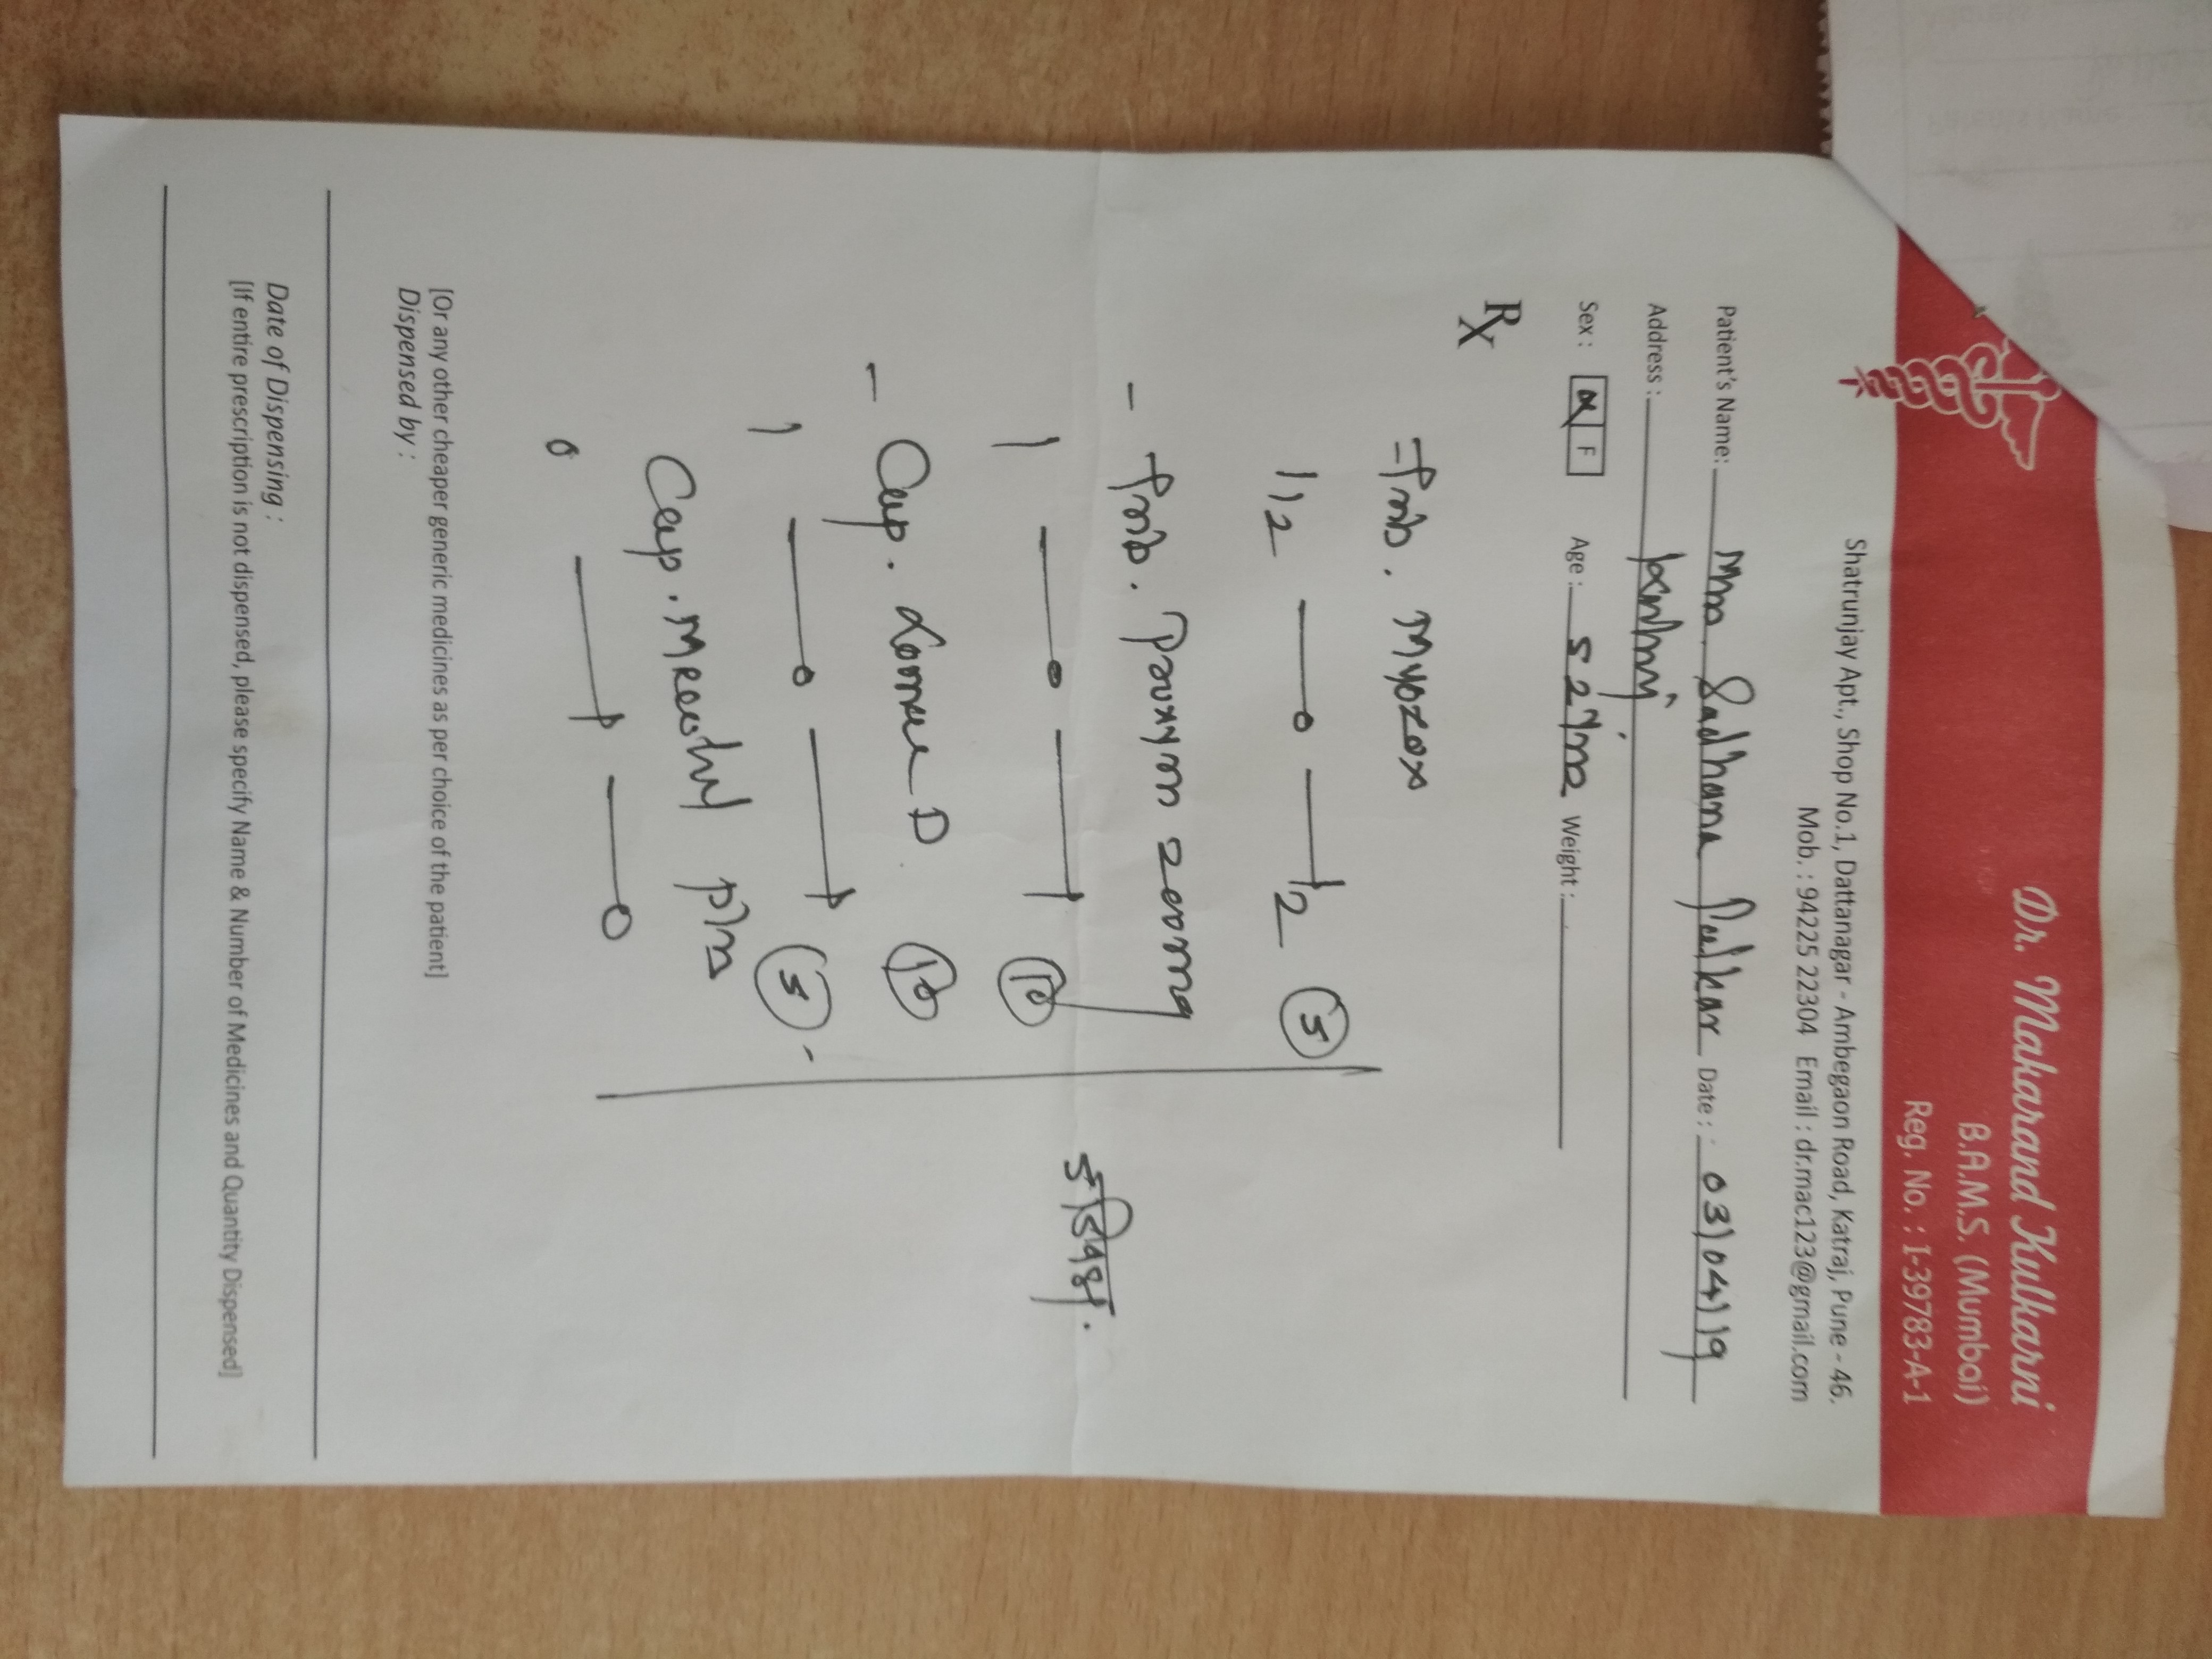 Dr. Makarand Kulkarni
B.A.M.S. (Mumbai)
Reg. No. : I-39783-A-1
Shatrunjay Apt., Shop No.1, Dattanagar - Ambegaon Road, Katraj, Pune - 46.
Mob. : 94225 22304 Email : dr.mac123@gmail.com
Patient's Name: Sadhana Date : 03/04/19
Address :
Sex : F Age : 52 Weight :
Rx
Tab. Myozox
1/2 — 0 — 1/2 (5)
- Tab. 200mg
1 — 0 — 1 (10)
- Cap. D (10)
1 — 0 — 1 (5)
Cap.
0 — 1 — 0
[Or any other cheaper generic medicines as per choice of the patient]
Dispensed by :
Date of Dispensing :
[If entire prescription is not dispensed, please specify Name & Number of Medicines and Quantity Dispensed]